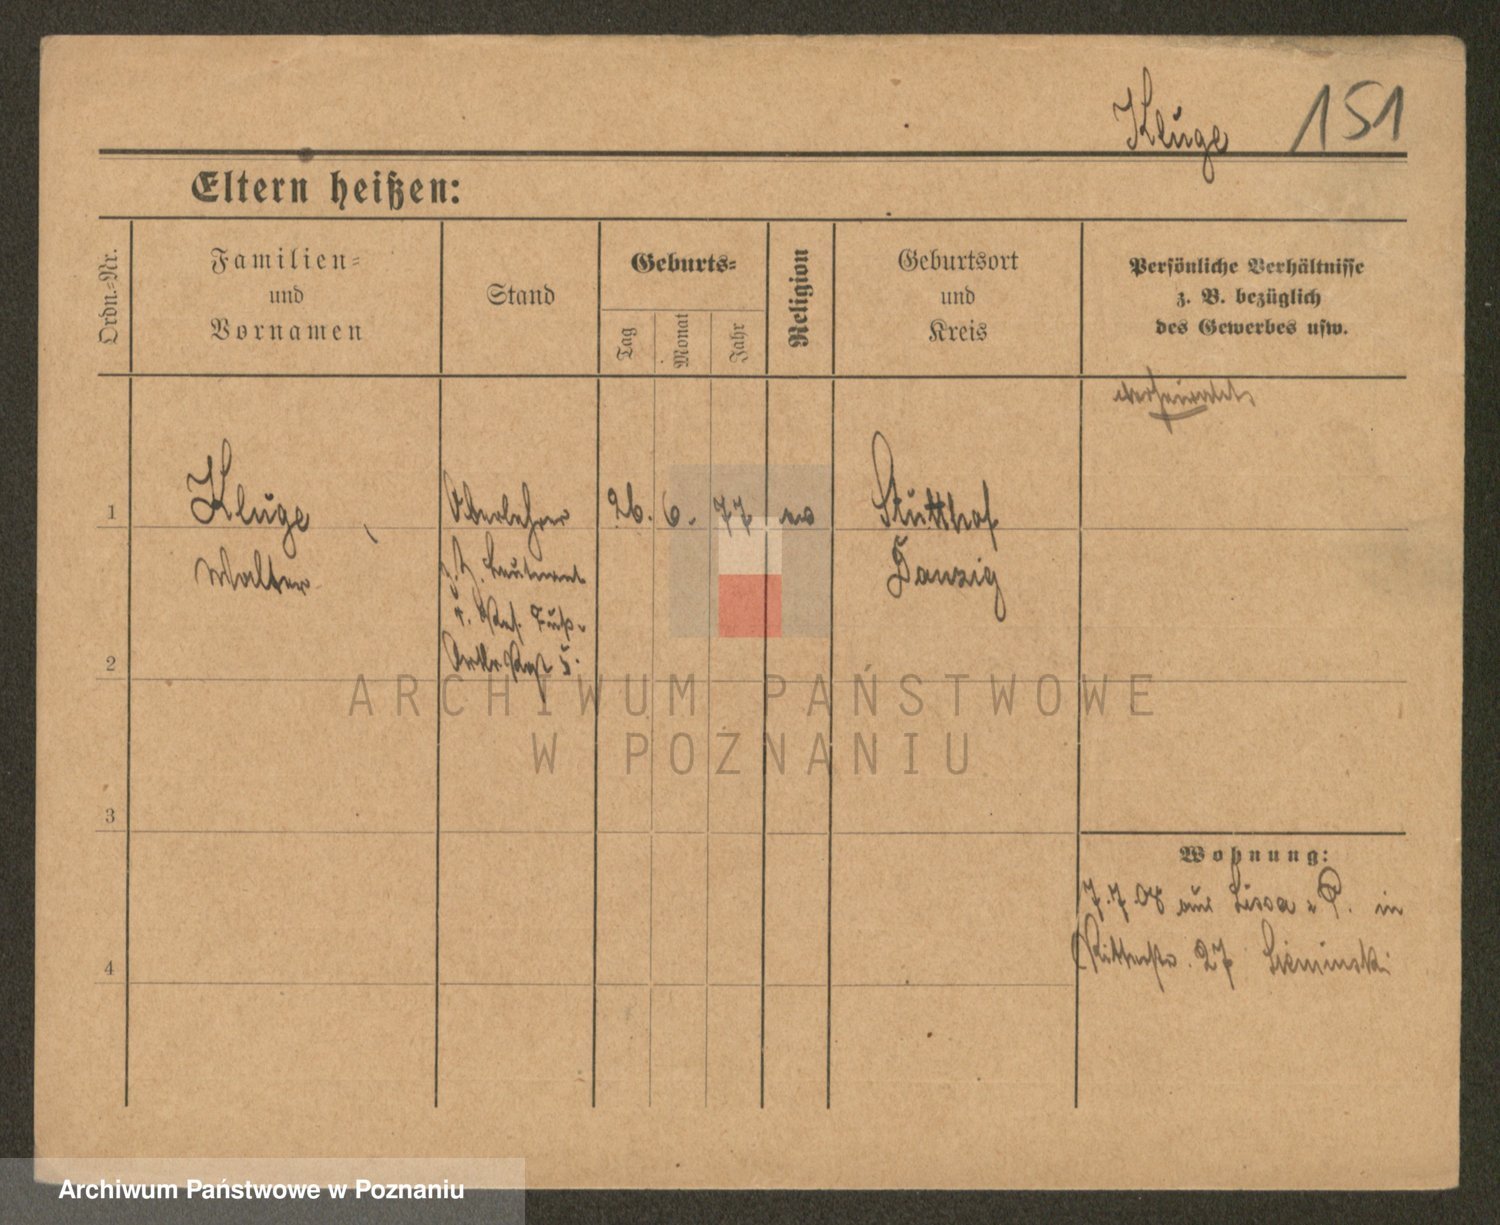 Kluge 151
Eltern heißen:
Ordn.-Nr.
Familien-
und
Vornamen
Stand
Geburts-
Tag
Monat
Jahr
Religion
Geburtsort
und
Kreis
Persönliche Verhältnisse
z. B. bezüglich
des Gewerbes usw.
verheiratet
1 Kluge Oberlehrer 26. 6. 77 ev Stutthof
Walter Leutnant Danzig
d. Res. Fuß-
2 Regt 5.
3
Wohnung:
7.7.08 aus Lissa i P. in
Ritterstr. 27 Sieminski
4
ARCHIWUM PAŃSTWOWE
W POZNANIU
Archiwum Państwowe w Poznaniu